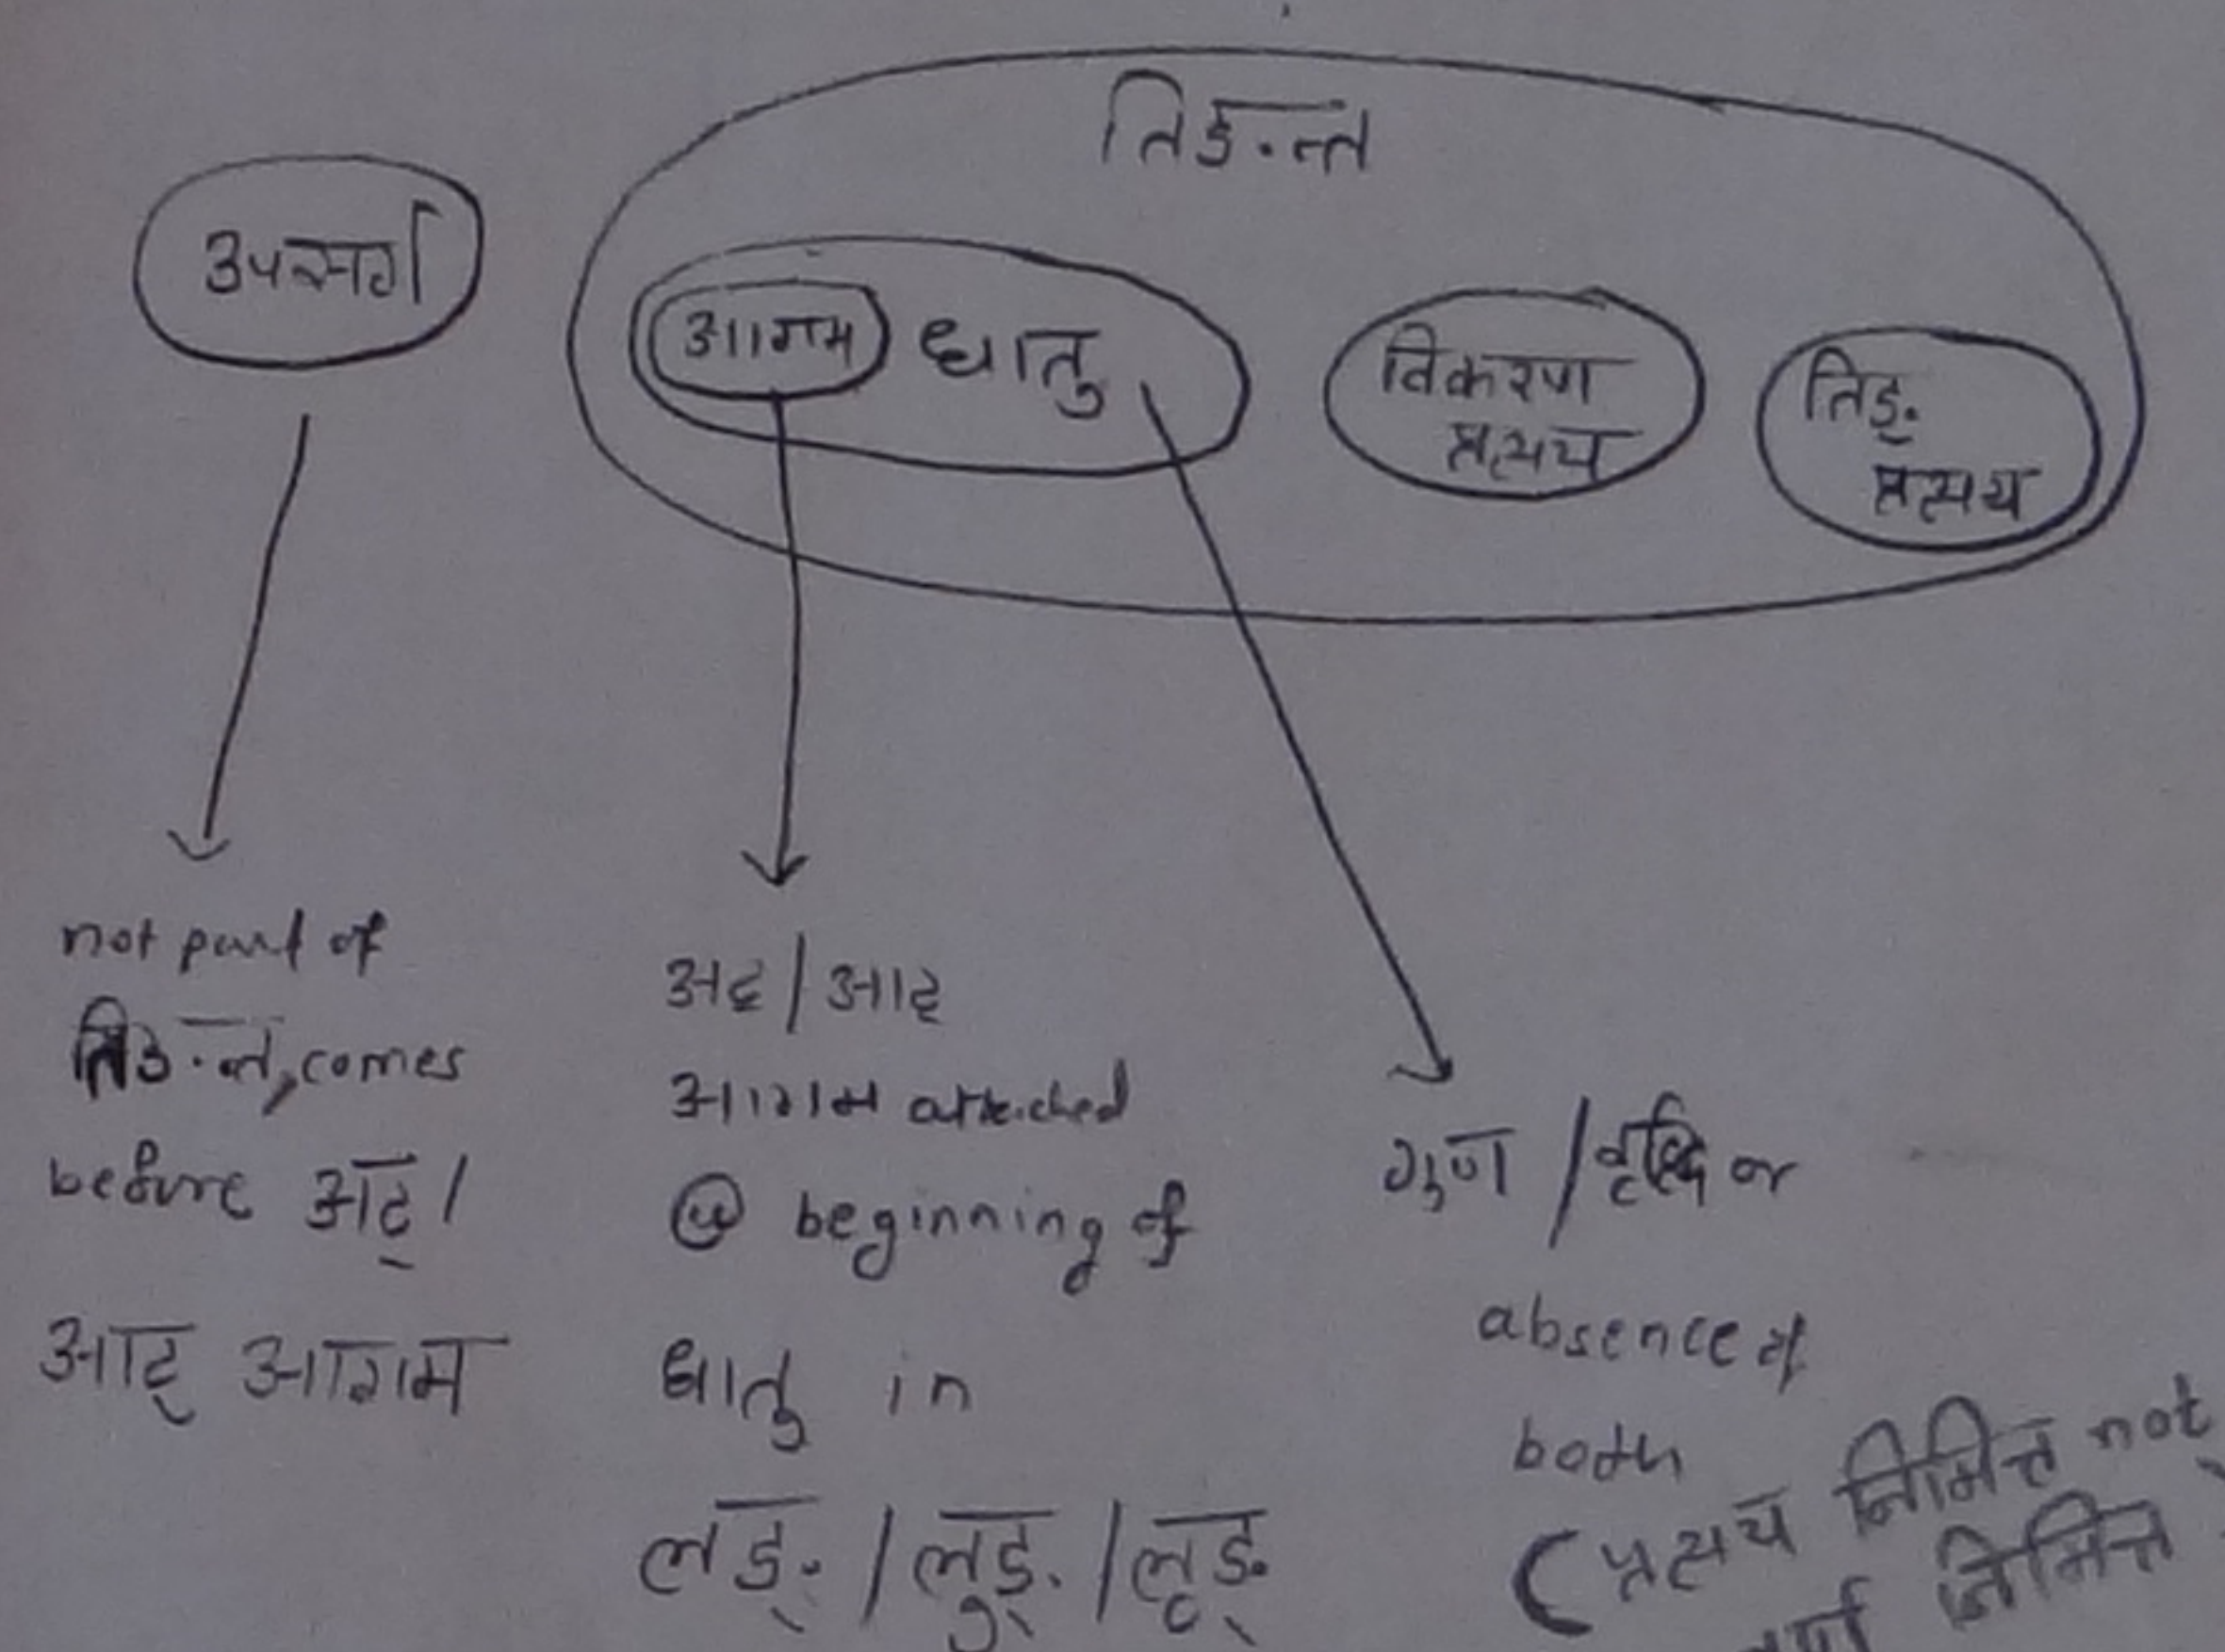 तिङन्त
उपसर्ग
आगम धातु
विकरण
प्रत्यय
तिङ्
प्रत्यय
not part of
तिङन्त, comes
before अट् /
आट् आगम
अट् / आट्
आगम attached
@ beginning of
धातु in
लङ् / लुङ् / लृङ्
गुण / वृद्धि or
absence of
both
(प्रत्यय निमित्त not
वर्ण निमित्त